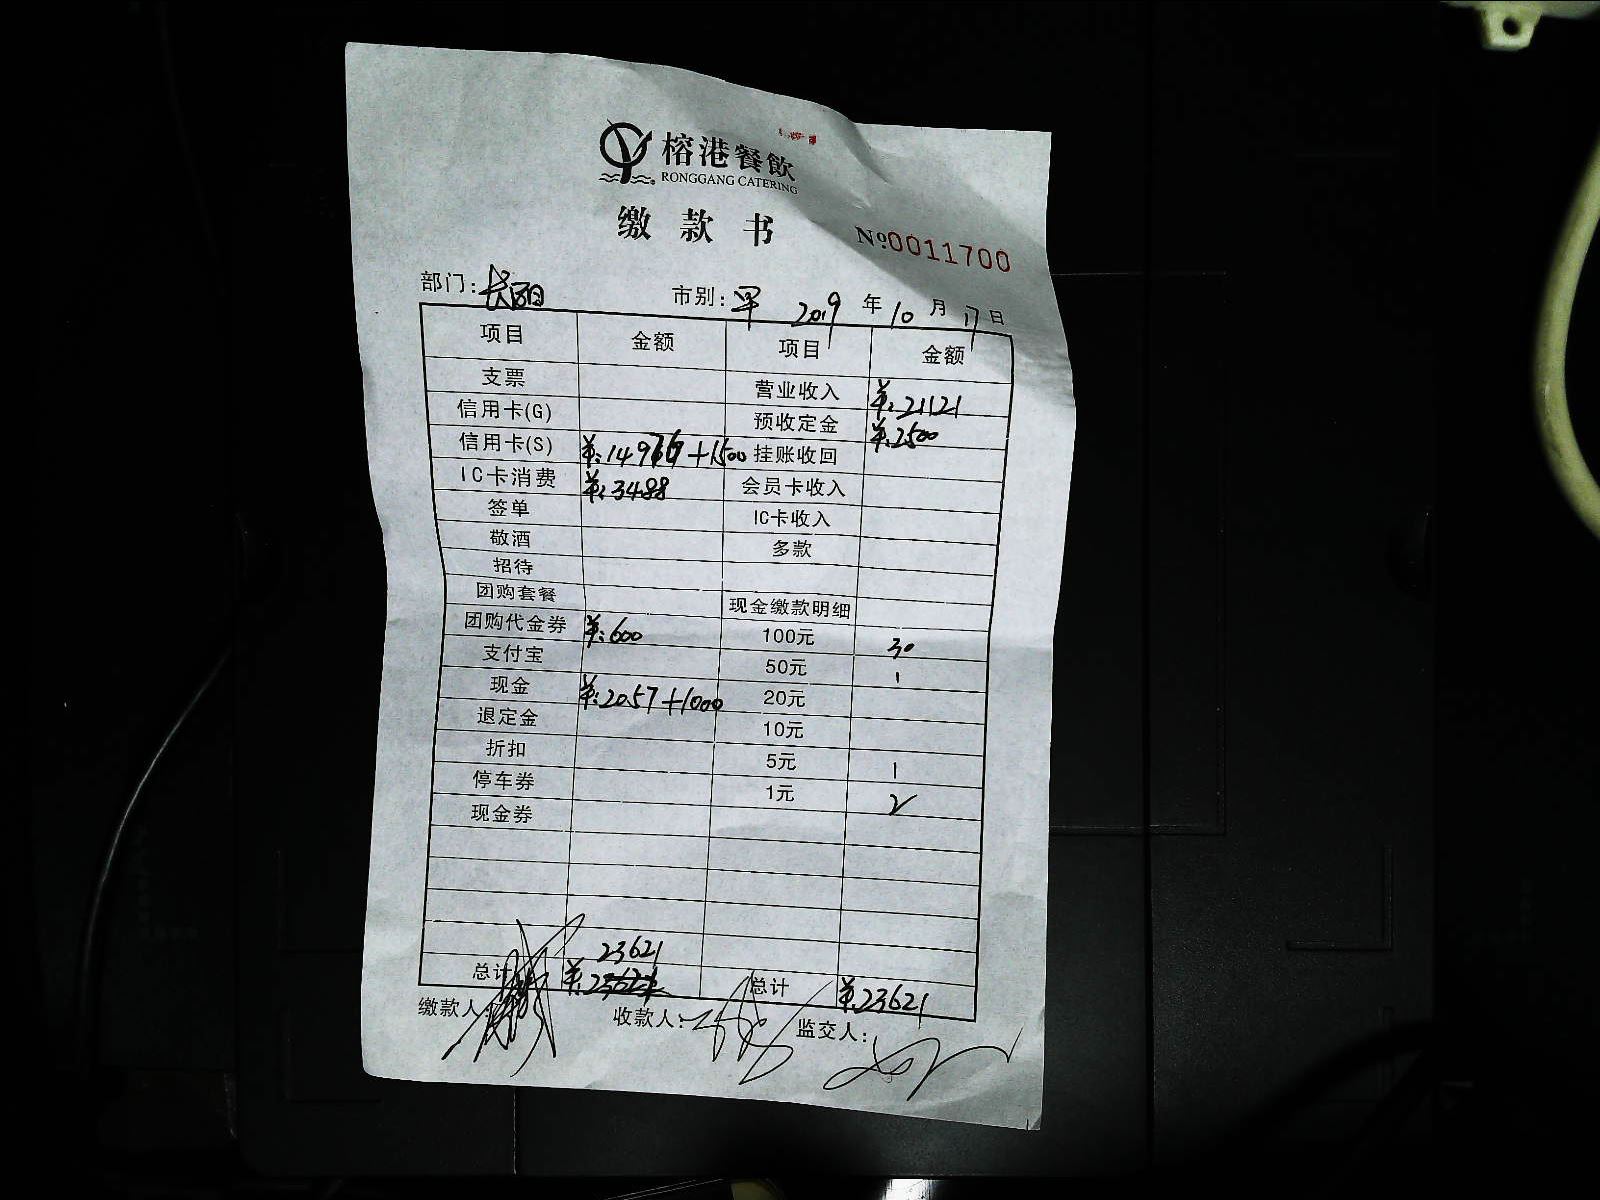 榕港餐飲
RONGGANG CATERING
缴款书
№0011700
部门:长阳 市别:早 2019年10月17日
项目 金额 项目 金额
支票 营业收入 ¥:21121
信用卡(G) 预收定金 ¥:2500
信用卡(S) ¥:14976+1500 挂账收回
IC卡消费 ¥:3488 会员卡收入
签单 IC卡收入
敬酒 多款
招待
团购套餐 现金缴款明细
团购代金券 ¥:600 100元 30
支付宝 50元 1
现金 ¥:2057+1000 20元
退定金 10元
折扣 5元 1
停车券 1元 2
现金券
23621
总计 ¥: 总计 ¥:23621
缴款人: 收款人: 监交人: